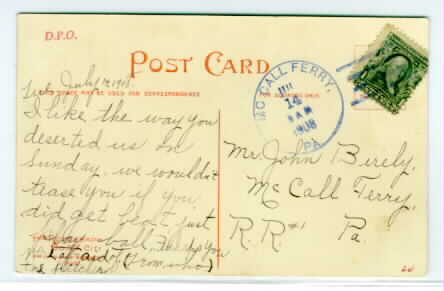 D.P.O.
POST CARD
THIS SPACE MAY BE USED FOR CORRESPONDENCE
July 12, 1908.
I like the way you
deserted us on
Sunday. we wouldn't
tease you if you
did get beat just
ball
(From who)
the
MC CALL FERRY,
JUL
14
AM
1908
PA
Mr. John Birely.
McCall Ferry,
R.R.#1 Pa